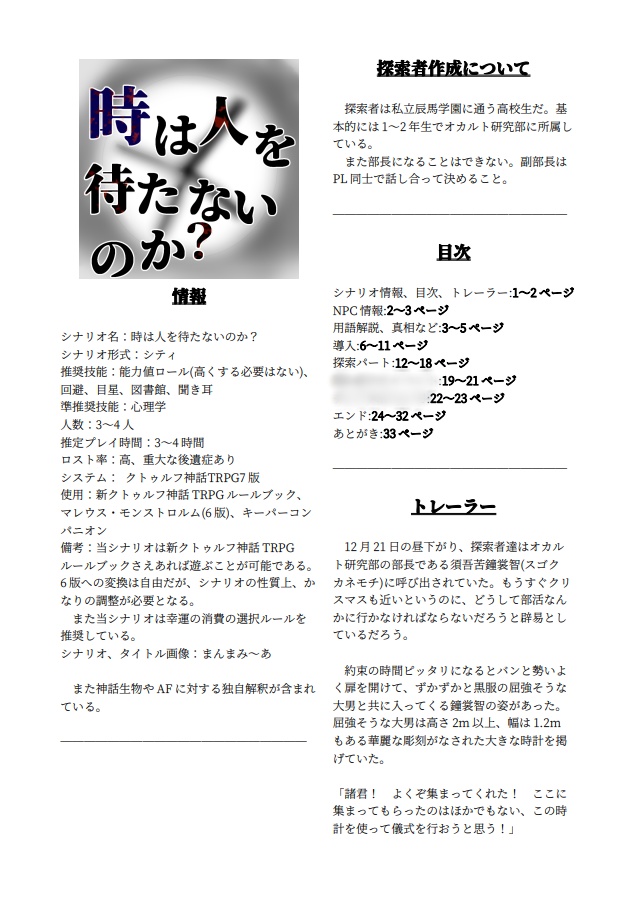 時は人を
待たない
のか?
情報
シナリオ名：時は人を待たないのか？
シナリオ形式：シティ
推奨技能：能力値ロール(高くする必要はない)、
回避、目星、図書館、聞き耳
準推奨技能：心理学
人数：3～4人
推定プレイ時間：3～4時間
ロスト率：高、重大な後遺症あり
システム： クトゥルフ神話TRPG7版
使用：新クトゥルフ神話TRPGルールブック、
マレウス・モンストロルム(6版)、キーパーコン
パニオン
備考：当シナリオは新クトゥルフ神話TRPG
ルールブックさえあれば遊ぶことが可能である。
6版への変換は自由だが、シナリオの性質上、か
なりの調整が必要となる。
　また当シナリオは幸運の消費の選択ルールを
推奨している。
シナリオ、タイトル画像：まんまみ～あ
　また神話生物やAFに対する独自解釈が含まれ
ている。
探索者作成について
　探索者は私立辰馬学園に通う高校生だ。基
本的には1～2年生でオカルト研究部に所属し
ている。
　また部長になることはできない。副部長は
PL同士で話し合って決めること。
目次
シナリオ情報、目次、トレーラー:1～2ページ
NPC情報:2～3ページ
用語解説、真相など:3～5ページ
導入:6～11ページ
探索パート:12～18ページ
:19～21ページ
:22～23ページ
エンド:24～32ページ
あとがき:33ページ
トレーラー
　12月21日の昼下がり、探索者達はオカル
ト研究部の部長である須吾苦鐘裳智(スゴク
カネモチ)に呼び出されていた。もうすぐクリ
スマスも近いというのに、どうして部活なん
かに行かなければならないだろうと辟易とし
ているだろう。
　約束の時間ピッタリになるとバンと勢いよ
く扉を開けて、ずかずかと黒服の屈強そうな
大男と共に入ってくる鐘裳智の姿があった。
屈強そうな大男は高さ2m以上、幅は1.2m
もある華麗な彫刻がなされた大きな時計を掲
げていた。
「諸君！　よくぞ集まってくれた！　ここに
集まってもらったのはほかでもない、この時
計を使って儀式を行おうと思う！」